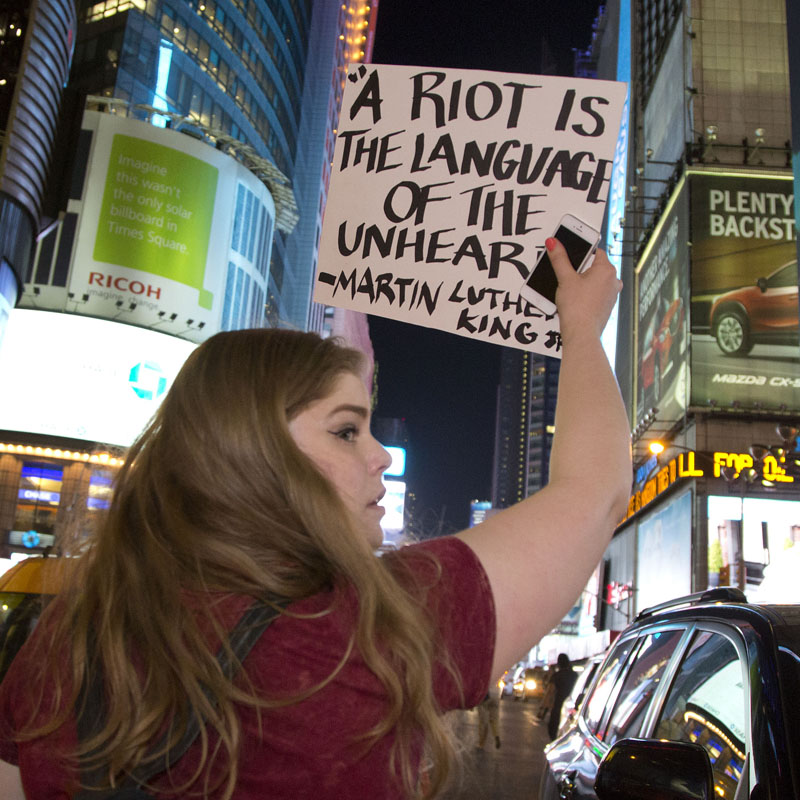 "A RIOT IS
THE LANGUAGE
OF THE
UNHEAR
-MARTIN LUTHE
KING JR
Imagine
this wasn't
the only solar
billboard in
Times Square.
RICOH
imagine. change.
PLENTY
BACKST
mazda CX-5
LL FOR